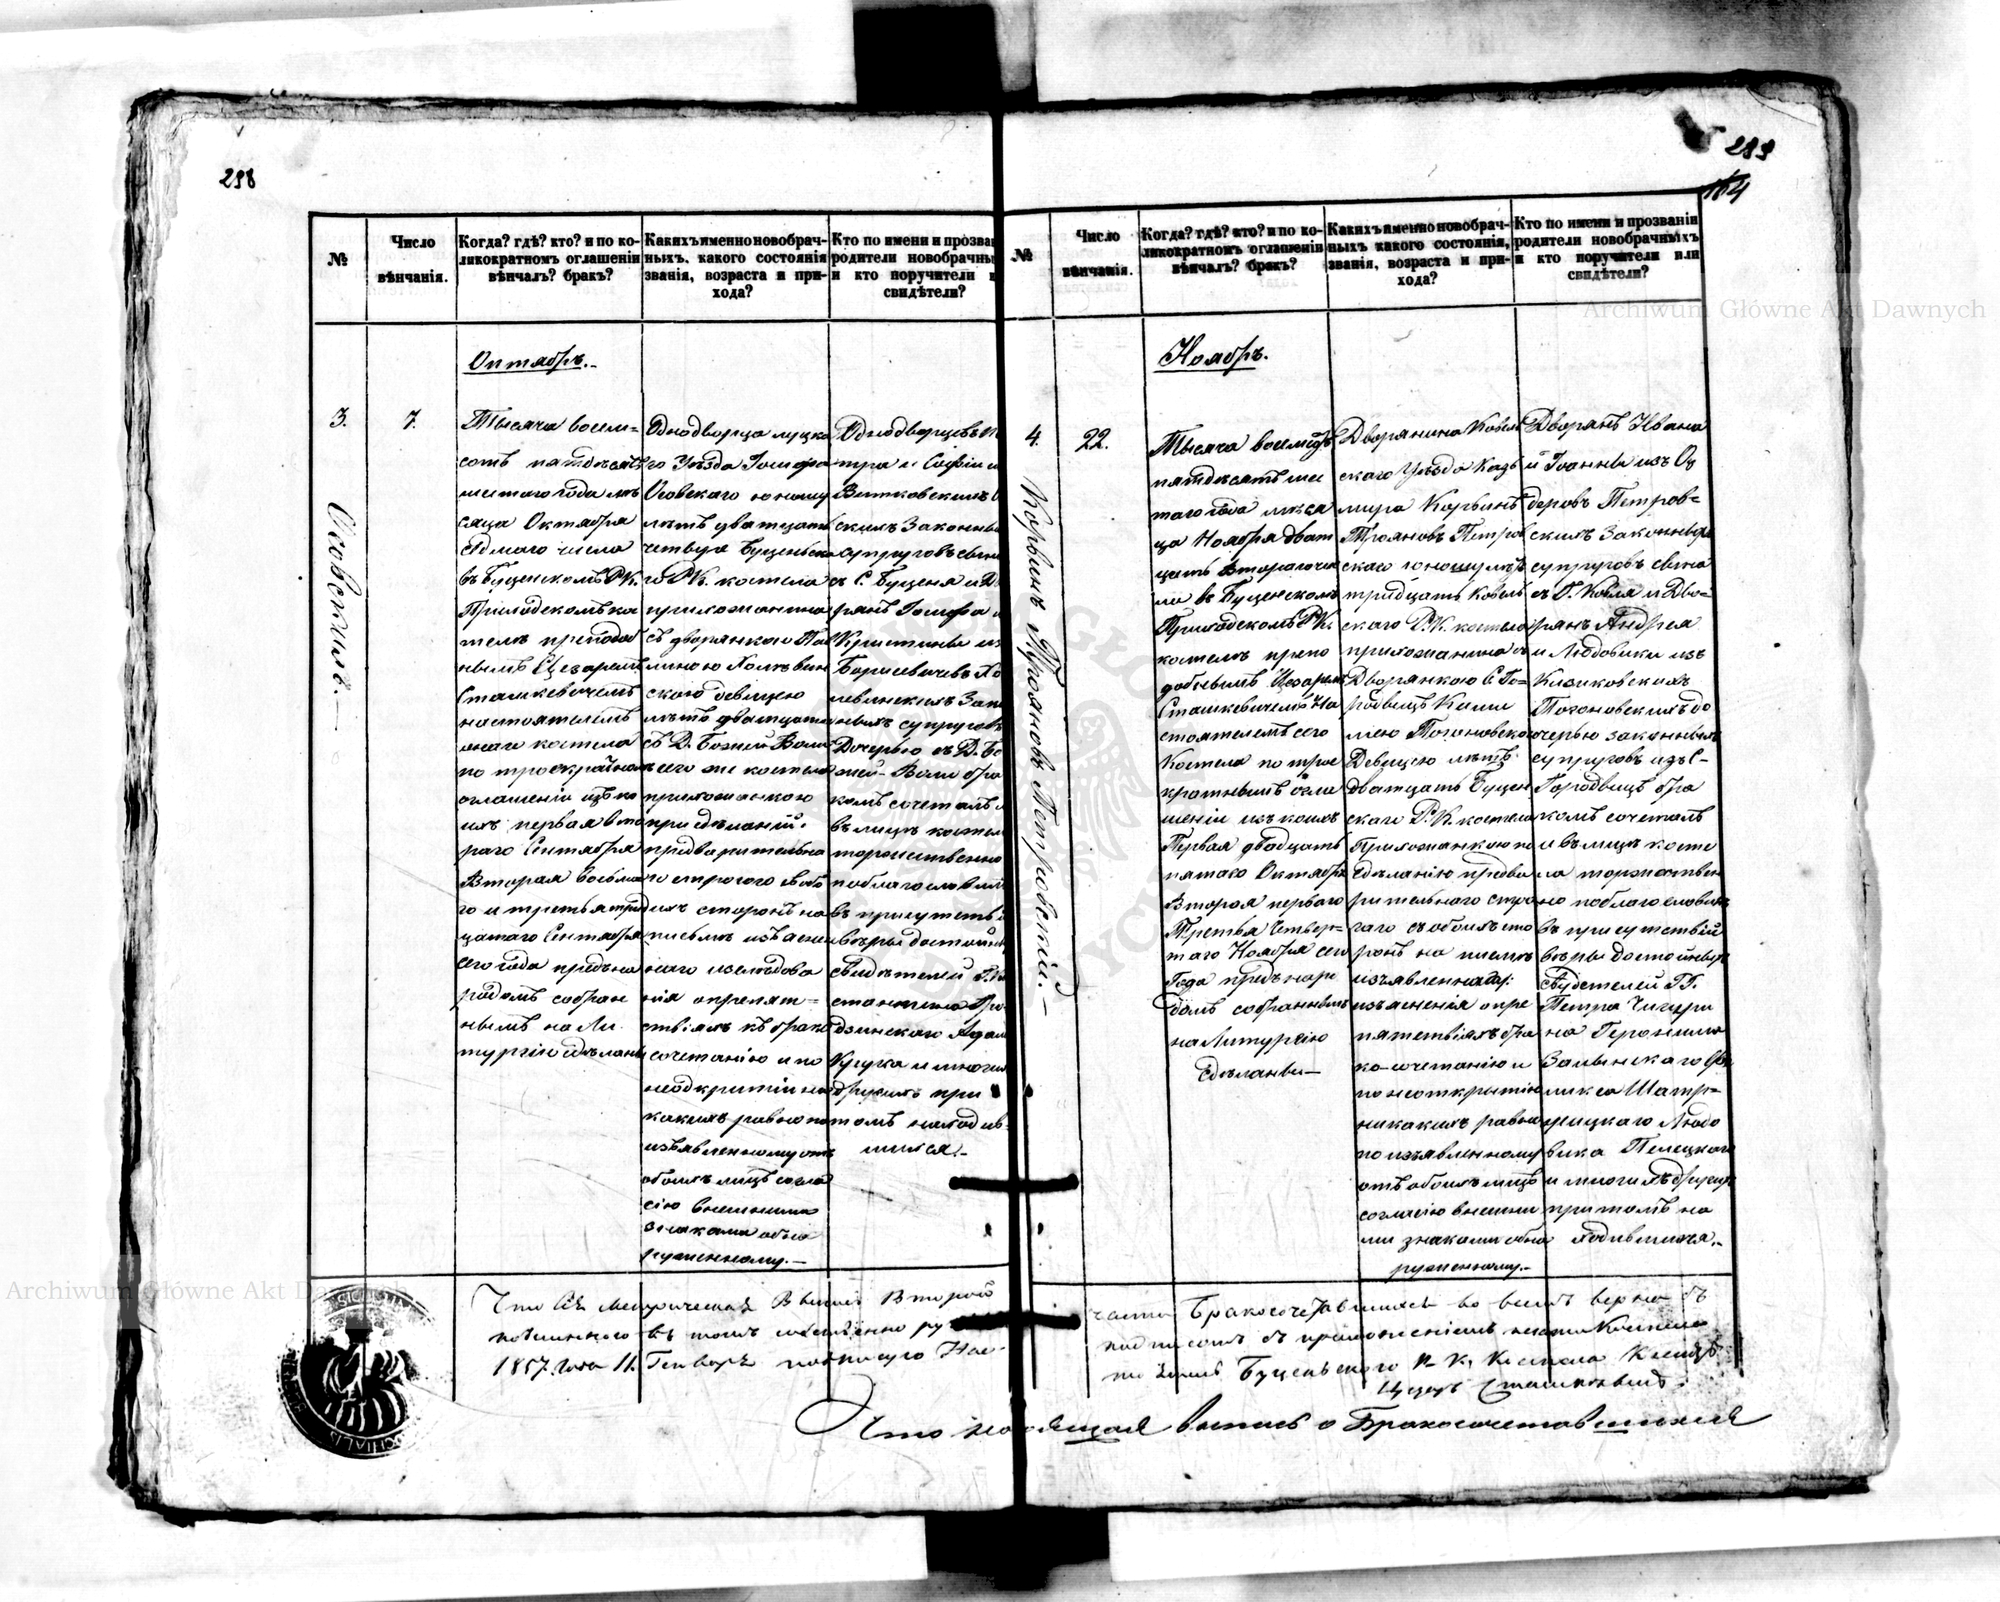 298
№
Число
вѣнчанія.
Когда? гдѣ? кто? и по ко-
ликократномъ оглашеніи
вѣнчалъ? бракъ?
Какихъ именно новобрач-
ныхъ, какого состоянія
званія, возраста и при-
хода?
Кто по имени и прозва
родители новобрачны
и кто поручители
свидѣтели?
Октябрь.
3.
7.
Осовскихъ.
Тысяча восем=
сотъ пятьдесятъ
шестаго года мѣ
сяца Октября
седмаго числа
въ Буценскомъ РК.
Приходскомъ ко
стелѣ преподоб
нымъ Цезаремъ
Сташкевичемъ
настоятелемъ
онаго костела
по троекратномъ
оглашеніи изъ ко
ихъ первая вто
раго Сентября
Вторая восьма
го и третья трид
цатаго Сентября
сего года предъ на
родомъ собран
нымъ на Ли
тургію сдѣланы
Однодворца луцка
го Уѣзда Іосифа
Осовскаго юношу
лѣтъ двадцать
четыре Буценьска
го РК. костела
прихожанина
съ дворянкою Пав
линою Холѣвин
скою девицею
лѣтъ двадцать
съ Д. Божей Воли
сего же костела
прихожанкою
при сдѣланій
предварительно
го строгого съ обо
ихъ сторонъ на
письмѣ изъясне
ннаго изслѣдова
нія опрепят=
ствіяхъ къ брако
сочетанію и по
неодкритіи ни
какихъ равно по
изъявленному отъ
обоихъ лицъ согла
сію внешними
знаками обна
руженному.—
Однодворцевъ Пе
тра и Софіи и
Витковскихъ О
скихъ Законны
супруговъ сына
съ С. Буценя и Дв
рянъ Іосифа и
Кристины из
Борисевичевъ Хо
левинскихъ Зако
ныхъ супруговъ
Дочерью съ Д. Бо
жей-Воли бра
комъ сочеталъ и
въ лицѣ костел
торжественно
поблагословилъ
въ присутств
вѣры достойн
Свидѣтелей
Адам
Крука и многихъ
другихъ при
томъ находив-
шихся.—
Что сія Метрическая Выпись Второй
1857 года 11. Генваря подписую Нас-
289
164
№
Число
вѣнчанія.
Когда? гдѣ? кто? и по ко-
ликократномъ оглашеніи
вѣнчалъ? бракъ?
Какихъ именно новобрач-
ныхъ какого состоянія,
званія, возраста и при-
хода?
Кто по имени и прозваніи
родители новобрачныхъ
и кто поручители или
свидѣтели?
Ноябрь.
4.
22.
Корвинъ Трояновъ Петровскій.—
Тысяча восемсотъ
пятдесятъ шес
таго года мѣся
ца Ноября двад
цать втораго чис
ла въ Буценскомъ
Приходскомъ РК.
костелѣ препо
добнымъ Цезаремъ
Сташкевичемъ На
стоятелемъ сего
Костела по трое
кратнымъ огла
шеніи изъ коихъ
Первая двадцать
пятаго Октября
Вторая перваго
Третья Четвер=
таго Ноября сего
Года предъ наро
домъ собраннымъ
на Литургію
сдѣланы—
Дворянина Ковель
скаго Уѣзда Кази
мира Корвинъ
Трояновъ Петров
скаго юношу лѣтъ
тридцать Ковель
скаго Р.К. костела
прихожанина съ
Дворянкою С. Го=
родвицъ Ками
лею Погоновскою
Девицею лѣтъ
двадцать Буцен
скаго Р.К. костела
Прихожанкою по
сдѣланію предва
рительного стро
гаго съ обоихъ сто
ронъ на письмѣ
изъявленнаго
изъясненія опре
пятствіяхъ бра
ко-сочетанію и
по неоткрытію
никакихъ равно
по изъявленному
отъ обоихъ лицъ
согласію внешни
ми знаками обна
руженному.—
Дворянъ Ивана
и Іоанны изъ Од
деровъ Петров=
скихъ Законныхъ
супруговъ сына
съ Г. Ковля и Дво=
рянъ Андрея
и Людовики изъ
Кизиковскихъ
Погоновскихъ до
черью законныхъ
супруговъ изъ С-
Городвицъ бра
комъ сочеталъ
и въ лицѣ косте
ла торжествен
но поблагословилъ
въ присутствій
вѣры достойныхъ
Свидетелей Г.Г.
Петра Чигири
на Геронима
Залынскаго Фе
ликса Шатр=
жицкаго Людо
вика Пелецкаго
и многихъ другихъ
притомъ на
ходившихся.—
части Бракосочетавшихся во всемъ верно съ
подписомъ съ приложеніемъ печати Костела
Буценьского Р. К. Костела Ксендзъ
Цезарь Сташкевичъ.
Что настоящая выпись о Бракосочетавшихся
Archiwum Główne Akt Dawnych
Archiwum Główne Akt Dawnych